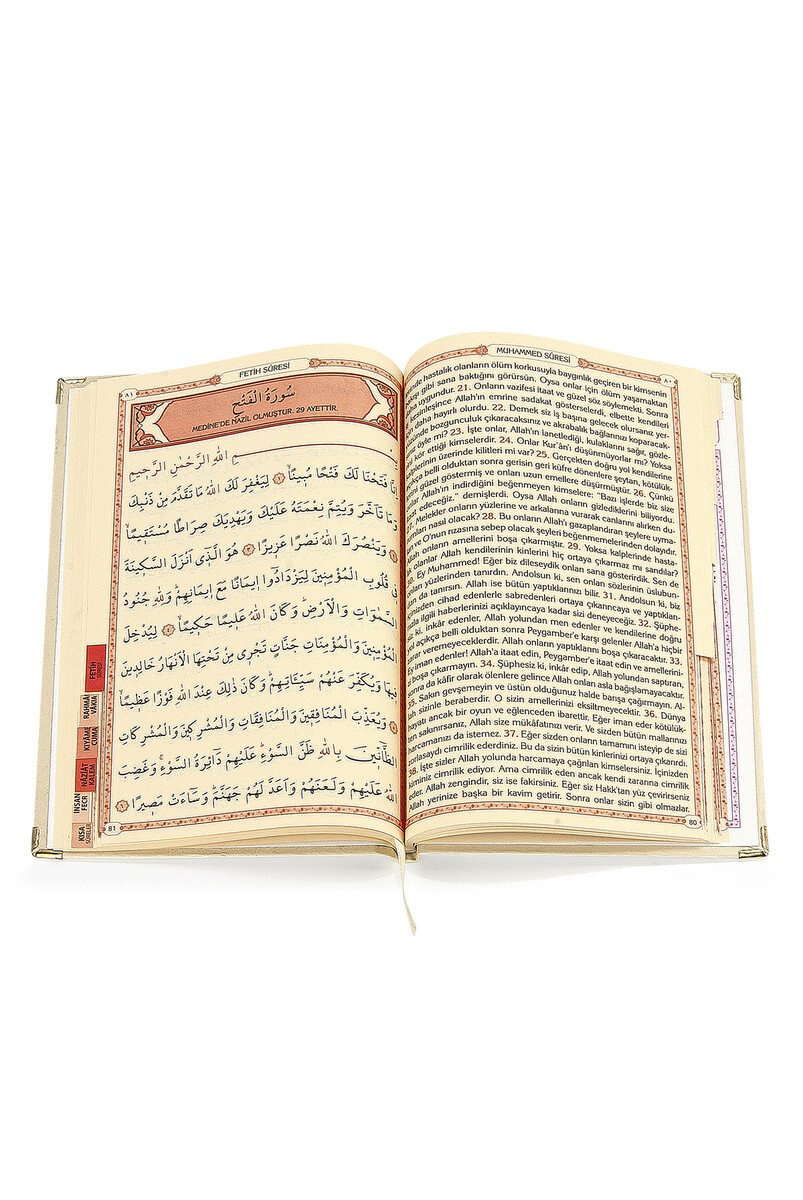 MUHAMMED SÛRESİ
٨٠
hastalık olanların ölüm korkusuyla baygınlık geçiren bir kimsenin
gibi sana baktığını görürsün. Oysa onlar için ölüm yaşamaktan
uygundur. 21. Onların vazifesi itaat ve güzel söz söylemekti. Sonra
kesinleşince Allah'ın emrine sadakat gösterselerdi, elbette kendileri
daha hayırlı olurdu. 22. Demek siz iş başına gelecek olursanız yer-
yüzünde bozgunculuk çıkaracaksınız ve akrabalık bağlarınızı koparacak-
öyle mi? 23. İşte onlar, Allah'ın lanetlediği, kulaklarını sağır, gözle-
kör ettiği kimselerdir. 24. Onlar Kur'ân'ı düşünmüyorlar mı? Yoksa
kalplerinin üzerinde kilitleri mi var? 25. Gerçekten doğru yol kendilerine
belli olduktan sonra gerisin geri küfre dönenlere şeytan, kötülük-
güzel göstermiş ve onları uzun emellere düşürmüştür. 26. Çünkü
Allah'ın indirdiğini beğenmeyen kimselere: "Bazı işlerde biz size
edeceğiz." demişlerdi. Oysa Allah onların gizlediklerini biliyordu.
27. Melekler onların yüzlerine ve arkalarına vurarak canlarını alırken du-
nasıl olacak? 28. Bu onların Allah'ı gazaplandıran şeylere uyma-
ve O'nun rızasına sebep olacak şeyleri beğenmemelerinden dolayıdır.
onların amellerini boşa çıkarmıştır. 29. Yoksa kalplerinde hasta-
olanlar Allah kendilerinin kinlerini hiç ortaya çıkarmaz mı sandılar?
30. Ey Muhammed! Eğer biz dileseydik onları sana gösterirdik. Sen de
yüzlerinden tanırdın. Andolsun ki, sen onları sözlerinin üslubun-
da tanırsın. Allah ise bütün yaptıklarınızı bilir. 31. Andolsun ki, biz
içinizden cihad edenlerle sabredenleri ortaya çıkarıncaya ve yaptıkları-
ilgili haberlerinizi açıklayıncaya kadar sizi deneyeceğiz. 32. Şüphe-
ki, inkâr edenler, Allah yolundan men edenler ve kendilerine doğru
açıkça belli olduktan sonra Peygamber'e karşı gelenler Allah'a hiçbir
zarar veremeyeceklerdir. Allah onların yaptıklarını boşa çıkaracaktır. 33.
Ey iman edenler! Allah'a itaat edin, Peygamber'e itaat edin ve amellerini-
boşa çıkarmayın. 34. Şüphesiz ki, inkâr edip, Allah yolundan saptıran,
sonra da kâfir olarak ölenlere gelince Allah onları asla bağışlamayacaktır.
35. Sakın gevşemeyin ve üstün olduğunuz halde barışa çağırmayın. Al-
lah sizinle beraberdir. O sizin amellerinizi eksiltmeyecektir. 36. Dünya
hayatı ancak bir oyun ve eğlenceden ibarettir. Eğer iman eder kötülük-
ten sakınırsanız, Allah size mükâfatınızı verir. Ve sizden bütün mallarınızı
harcamanızı da istemez. 37. Eğer sizden onların tamamını isteyip de sizi
zorlasaydı cimrilik ederdiniz. Bu da sizin bütün kinlerinizi ortaya çıkarırdı.
38. İşte sizler Allah yolunda harcamaya çağrılan kimselersiniz. İçinizden
kiminiz cimrilik ediyor. Ama cimrilik eden ancak kendi zararına cimrilik
eder. Allah zengindir, siz ise fakirsiniz. Eğer siz Hakk'tan yüz çevirirseniz
Allah yerinize başka bir kavim getirir. Sonra onlar sizin gibi olmazlar.
80
FETİH SÛRESİ
٨١
سُورَةُ الْفَتْحِ
MEDİNE'DE NÂZİL OLMUŞTUR. 29 AYETTİR.
بِسْمِ اللّٰهِ الرَّحْمٰنِ الرَّحٖيمِ
اِنَّا فَتَحْنَا لَكَ فَتْحًا مُبٖينًاۙ ﴿١﴾ لِيَغْفِرَ لَكَ اللّٰهُ مَا تَقَدَّمَ مِنْ ذَنْبِكَ
وَمَا تَاَخَّرَ وَيُتِمَّ نِعْمَتَهُ عَلَيْكَ وَيَهْدِيَكَ صِرَاطًا مُسْتَقٖيمًاۙ
﴿٢﴾ وَيَنْصُرَكَ اللّٰهُ نَصْرًا عَزٖيزًا ﴿٣﴾ هُوَ الَّذٖٓى اَنْزَلَ السَّكٖينَةَ
فٖى قُلُوبِ الْمُؤْمِنٖينَ لِيَزْدَادُٓوا اٖيمَانًا مَعَ اٖيمَانِهِمْؕ وَلِلّٰهِ جُنُودُ
السَّمٰوَاتِ وَالْاَرْضِؕ وَكَانَ اللّٰهُ عَلٖيمًا حَكٖيمًاۙ ﴿٤﴾ لِيُدْخِلَ
الْمُؤْمِنٖينَ وَالْمُؤْمِنَاتِ جَنَّاتٍ تَجْرٖى مِنْ تَحْتِهَا الْاَنْهَارُ خَالِدٖينَ
فٖيهَا وَيُكَفِّرَ عَنْهُمْ سَيِّـَٔاتِهِمْؕ وَكَانَ ذٰلِكَ عِنْدَ اللّٰهِ فَوْزًا عَظٖيمًاۙ
﴿٥﴾ وَيُعَذِّبَ الْمُنَافِقٖينَ وَالْمُنَافِقَاتِ وَالْمُشْرِكٖينَ وَالْمُشْرِكَاتِ
الظَّٓانّٖينَ بِاللّٰهِ ظَنَّ السَّوْءِؕ عَلَيْهِمْ دَٓائِرَةُ السَّوْءِۚ وَغَضِبَ
اللّٰهُ عَلَيْهِمْ وَلَعَنَهُمْ وَاَعَدَّ لَهُمْ جَهَنَّمَؕ وَسَٓاءَتْ مَصٖيرًا ﴿٦﴾
81
FETİH
SÛRESİ
RAHMÂN
VÂKIA
KIYÂME
CUMA
NÂZİÂT
KALEM
İNSAN
FECR
KISA
SÛRELER